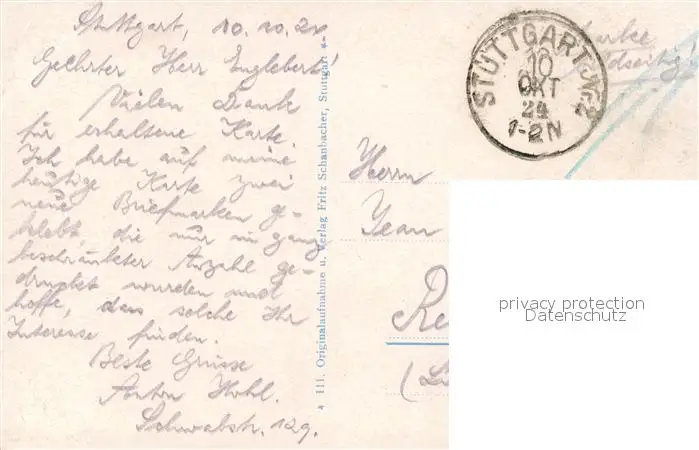 Stuttgart, 10.10.24
Geehrter Herr Englebert!
Vielen Dank
für erhaltene Karte.
Ich habe auf meine
heutige Karte zwei
neue Briefmarken ge-
klebt, die nur in ganz
beschränkter Anzahl ge-
druckt wurden und
hoffe, dass solche Ihr
Interesse finden.
Beste Grüsse
Anton Hohl.
Schwabstr. 129.
111. Originalaufnahme u. Verlag Fritz Schanbacher, Stuttgart
STUTTGART
10
OKT
24
1-2 N
Marke
Herrn
Jean
privacy protection
Datenschutz